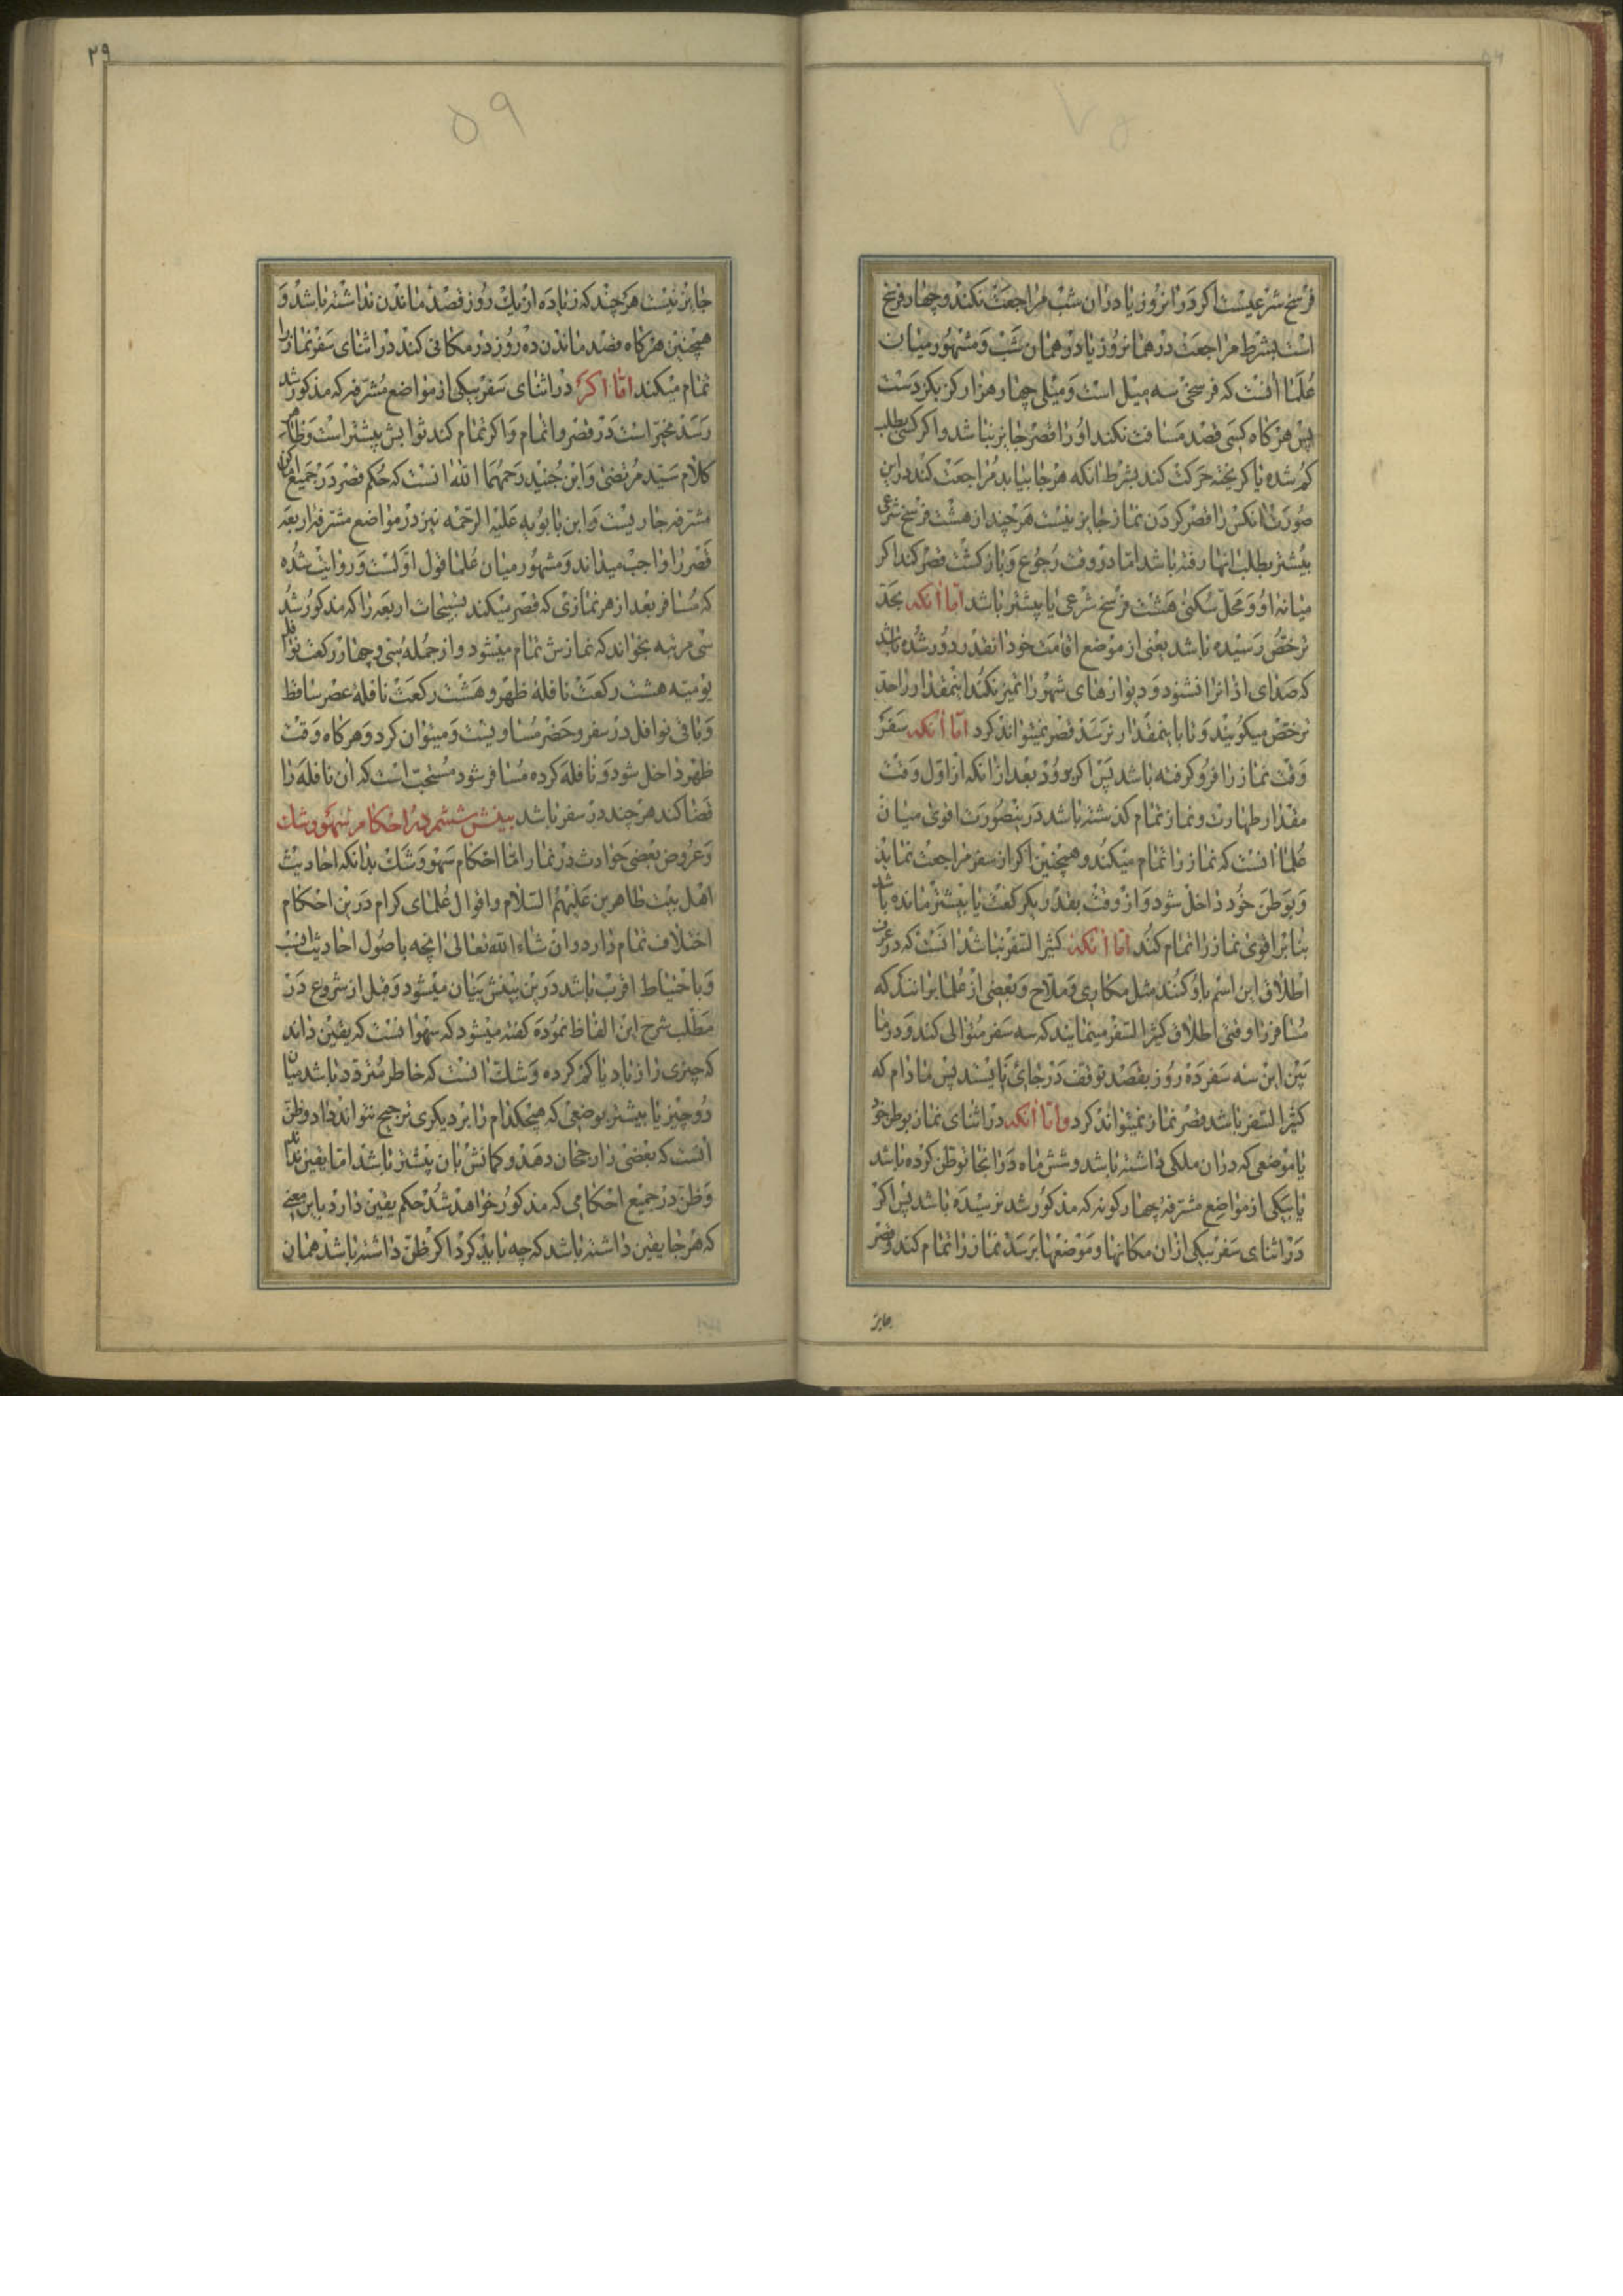 فرسخ شرعیست اکر درانروز یا دران شب مراجعت نکند و چهار فرسخ
است بشرط مراجعت در همانروز یا در همان شب و مشهور میان
علما انست که فرسخی سه میل است و میلی چهار هزار کز بکز دست
پس هرکاه کسی قصد مسافت نکند او را قصر جایز نباشد و اکر کسی بطلب
کم شده یا کریخته حرکت کند بشرط انکه هرجا بیابد مراجعت کند در این
صورت انکس را قصر کردن نماز جایز نیست هرچند از هشت فرسخ شرعی
بیشتر بطلب انها رفته باشد اما در وقت رجوع و بازکشت قصر کند اکر
میانه او و محل سکنی هشت فرسخ شرعی یا بیشتر باشد اما انکه بحد
ترخص رسیده باشد یعنی از موضع اقامت خود انقدر دور شده باشد
که صدای اذانرا نشنود و دیوارهای شهر را تمیز نکند اینمقدار را حد
ترخص میکویند و تا باینمقدار نرسد قصر نمیتواند کرد اما انکه سفر
وقت نماز را فرو کرفته باشد پس اکر برود بعد از انکه از اول وقت
مقدار طهارت و نماز تمام کذشته باشد درینصورت اقوی میان
علما انست که نماز را تمام میکند و همچنین اکر از سفر مراجعت نماید
و بوطن خود داخل شود و از وقت بقدر یکرکعت یا بیشتر مانده باشد
بنابر اقوی نماز را تمام کند اما انکه کثیر السفر نباشد انست که در عرف
اطلاق این اسم باو کنند مثل مکاری و ملاح و بعضی از علما برانند که
مسافر را وقتی اطلاق کثیر السفر مینمایند که سه سفر متوالی کند و در ما
بین این سه سفر ده روز بقصد توقف در جائی نایستد پس مادام که
کثیر السفر باشد قصر نماز نمیتواند کرد و اما انکه در اثنای نماز بوطن خود
یا موضعی که دران ملکی داشته باشد و شش ماه در انجا توطن کرده باشد
یا بیکی از مواضع مشترفه چهارکونه که مذکور شد نرسیده باشد پس اکر
در اثنای سفر بیکی ازان مکانها و موضعها برسد نماز را تمام کند و قصر
جایز
۲۹
۵۹
جایز نیست هرچند که زیاده از یک روز قصد ماندن نداشته باشد و
همچنین هرکاه قصد ماندن ده روز در مکانی کند در اثنای سفر نماز را
تمام میکند اما اکر در اثنای سفر بیکی از مواضع مشرفه که مذکور شد
رسد مخیر است در قصر و اتمام و اکر تمام کند ثوابش بیشتر است و ظاهر
کلام سید مرتضی و ابن جنید رحمهما الله انست که حکم قصر در جمیع اماکن
مشرفه جاریست و ابن بابویه علیه الرحمه نیز در مواضع مشرفه اربعه
قصر را واجب میداند و مشهور میان علما قول اولست و روایت شده
که مسافر بعد از هر نمازی که قصر میکند تسبیحات اربعه را که مذکور شد
سی مرتبه بخواند که نمازش تمام میشود و از جمله سی و چهار رکعت نوافل
یومیه هشت رکعت نافله ظهر و هشت رکعت نافله عصر ساقط
و باقی نوافل در سفر و حضر مساویست و میتوان کرد و هرکاه وقت
ظهر داخل شود و نافله کرده مسافر شود مستحب است که ان نافله را
قضا کند هرچند در سفر باشد بینش ششم در احکام سهو و شک
و عروض بعضی حوادث در نماز اما احکام سهو و شک بدانکه احادیث
اهل بیت طاهرین علیهم السلام و اقوال علمای کرام درین احکام
اختلاف تمام دارد و ان شاء الله تعالی انچه باصول احادیث انسب
و باحتیاط اقرب باشد درین بینش بیان میشود و قبل از شروع در
مطلب شرح این الفاظ نموده کفته میشود که سهو انست که یقین داند
که چیزی را زیاد یا کم کرده و شک انست که خاطر متردد باشد میان
دو چیز یا بیشتر بوضعی که هیچکدام را بر دیکری ترجیح نتواند داد و ظن
انست که بعضی را رجحان دهد و کمانش بان بیشتر باشد اما یقین نداند
و ظن در جمیع احکامی که مذکور خواهد شد حکم یقین دارد باین معنی
که هرجا یقین داشته باشد که چه باید کرد اکر ظن داشته باشد همان